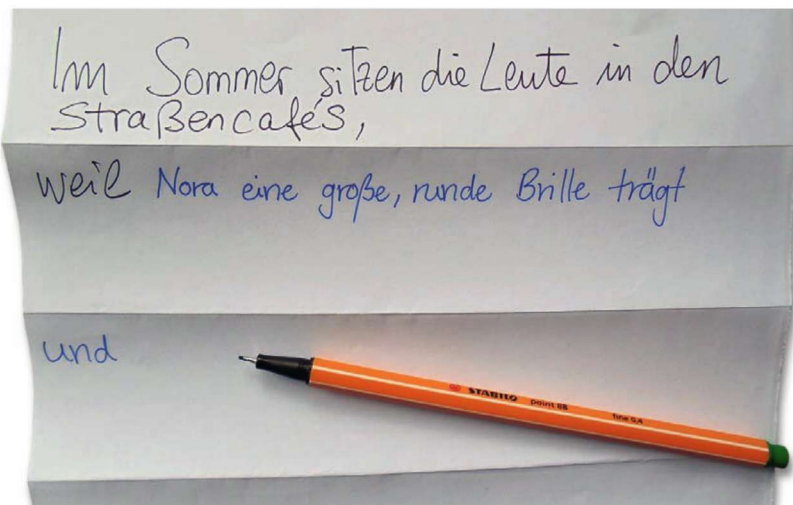 Im Sommer sitzen die Leute in den
Straßencafés,
weil Nora eine große, runde Brille trägt
und
STABILO point 88 fine 0,4